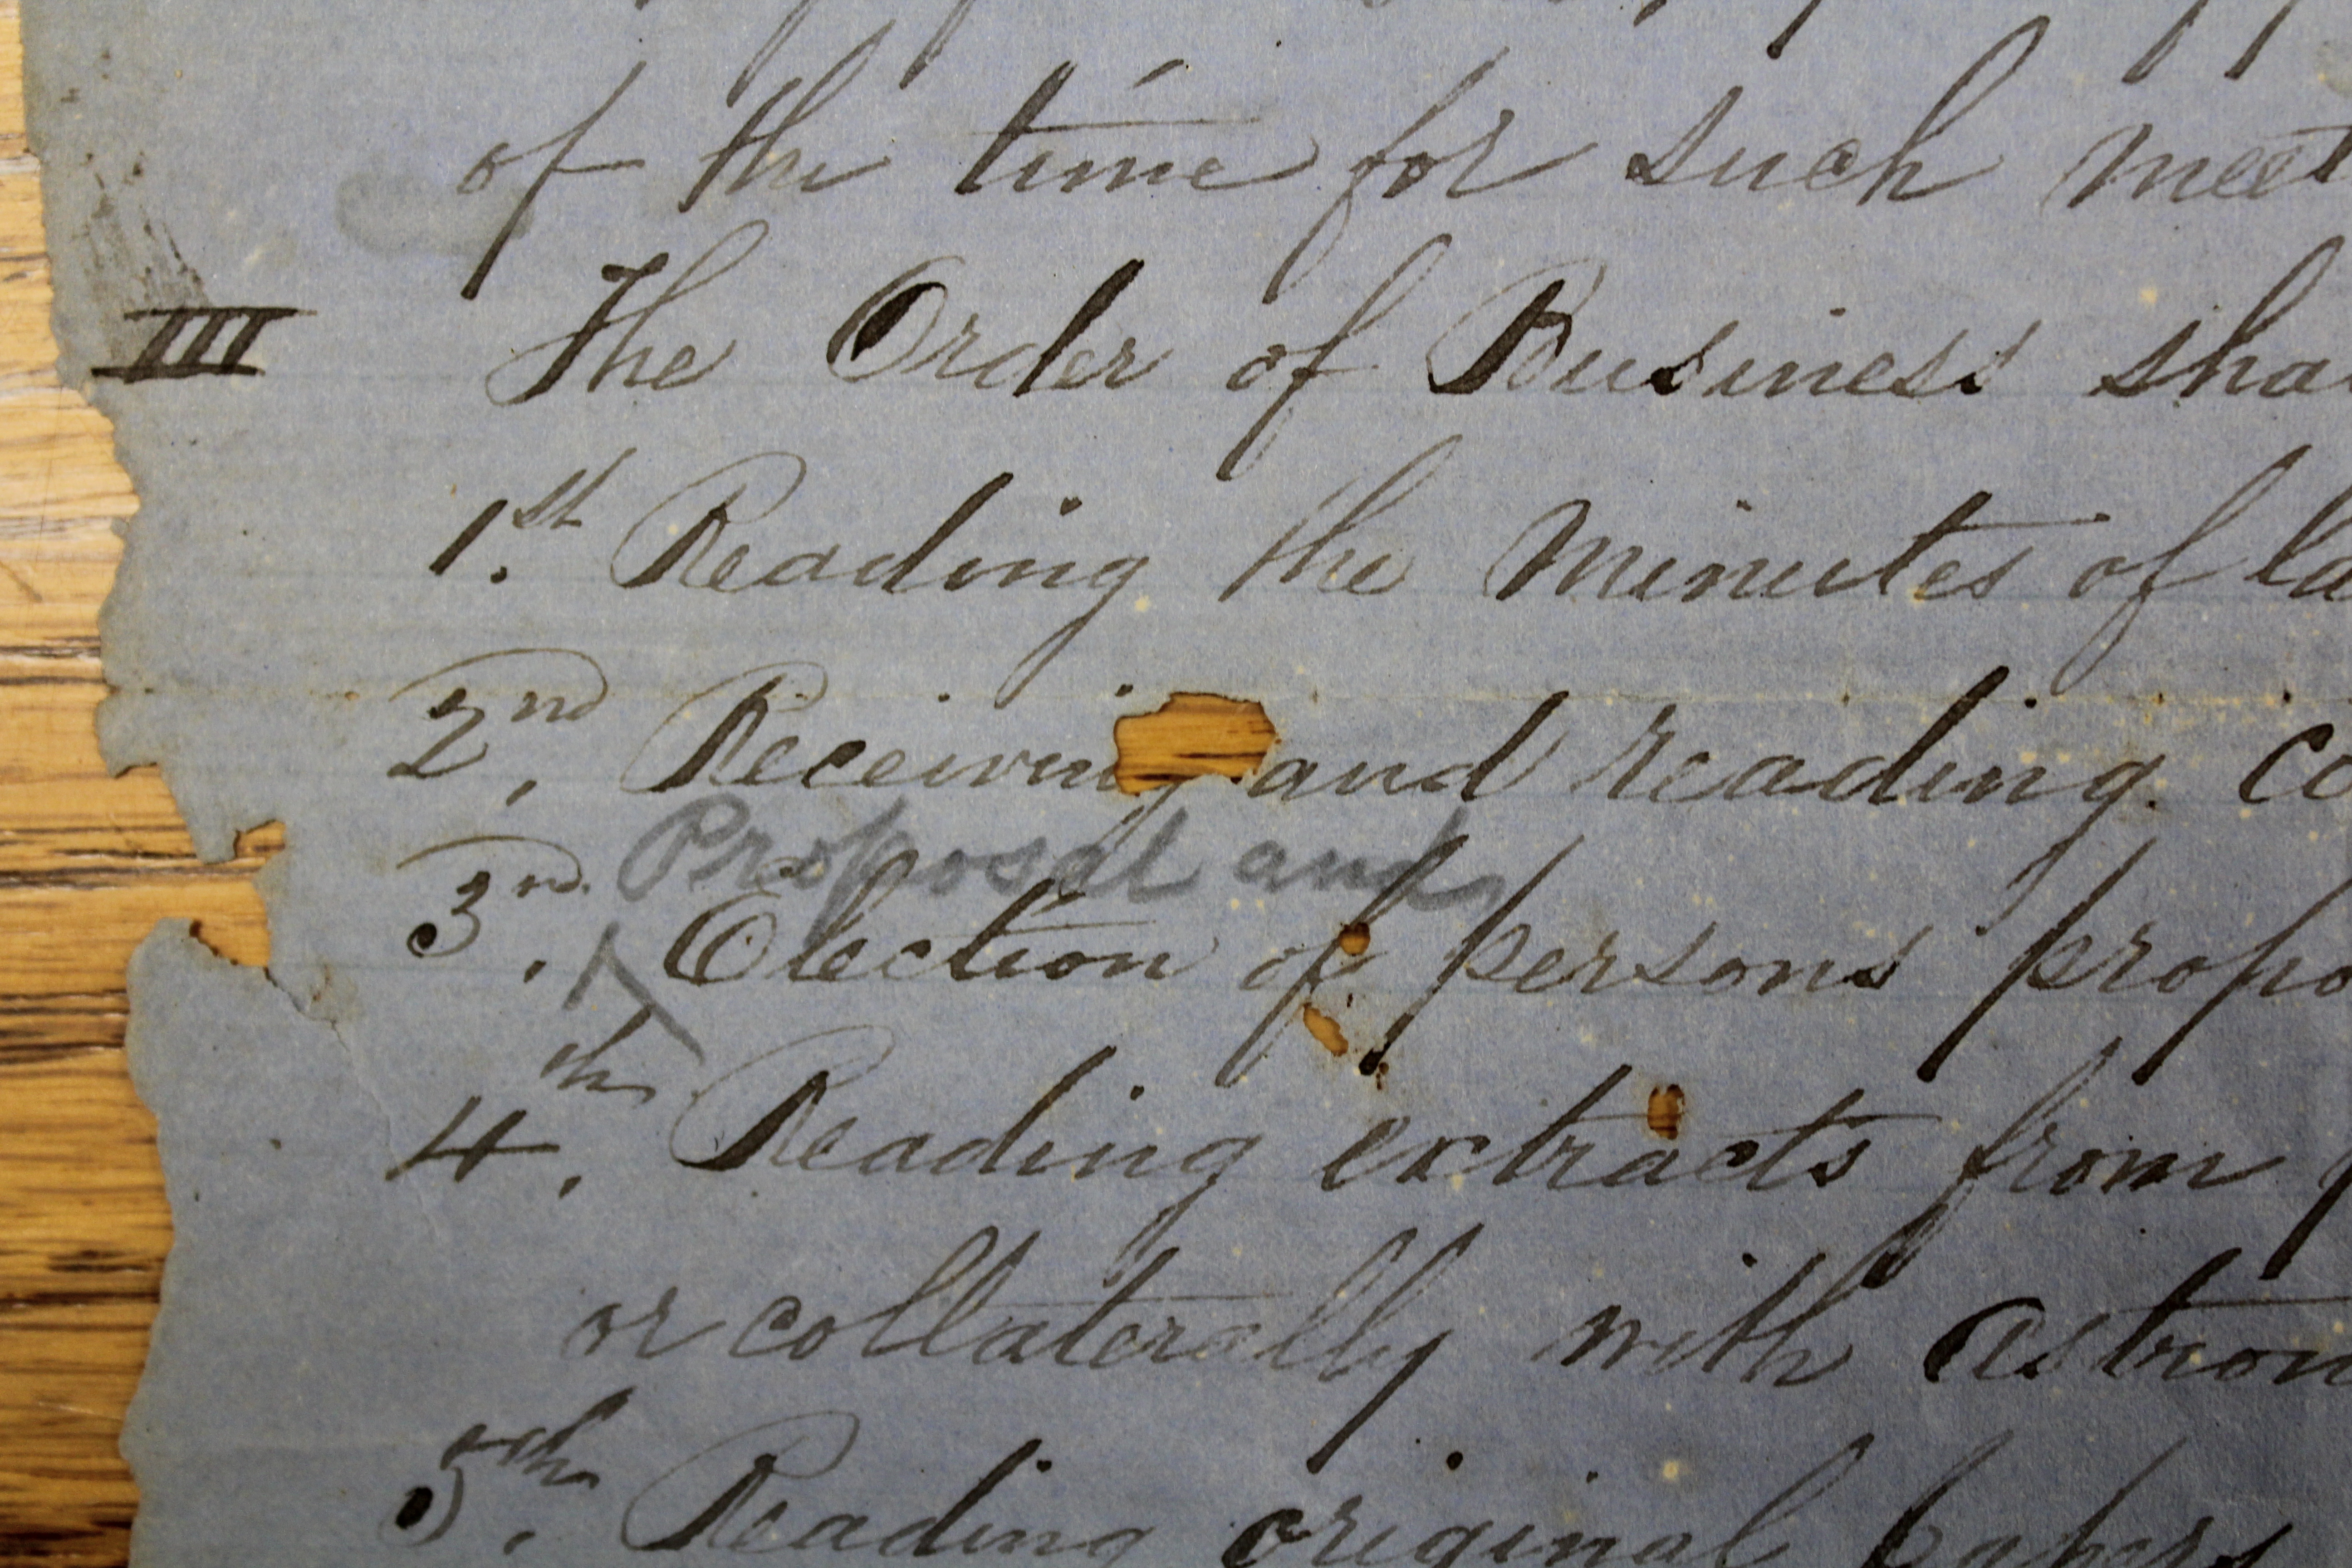 of the time for such meet
III The Order of Business sha
1.st Reading the Minutes of la
2nd, Receiving and reading co
Proposal and
3rd, Election of persons propo
4th, Reading extracts from
or collaterally with astron
5th, Reading original papers